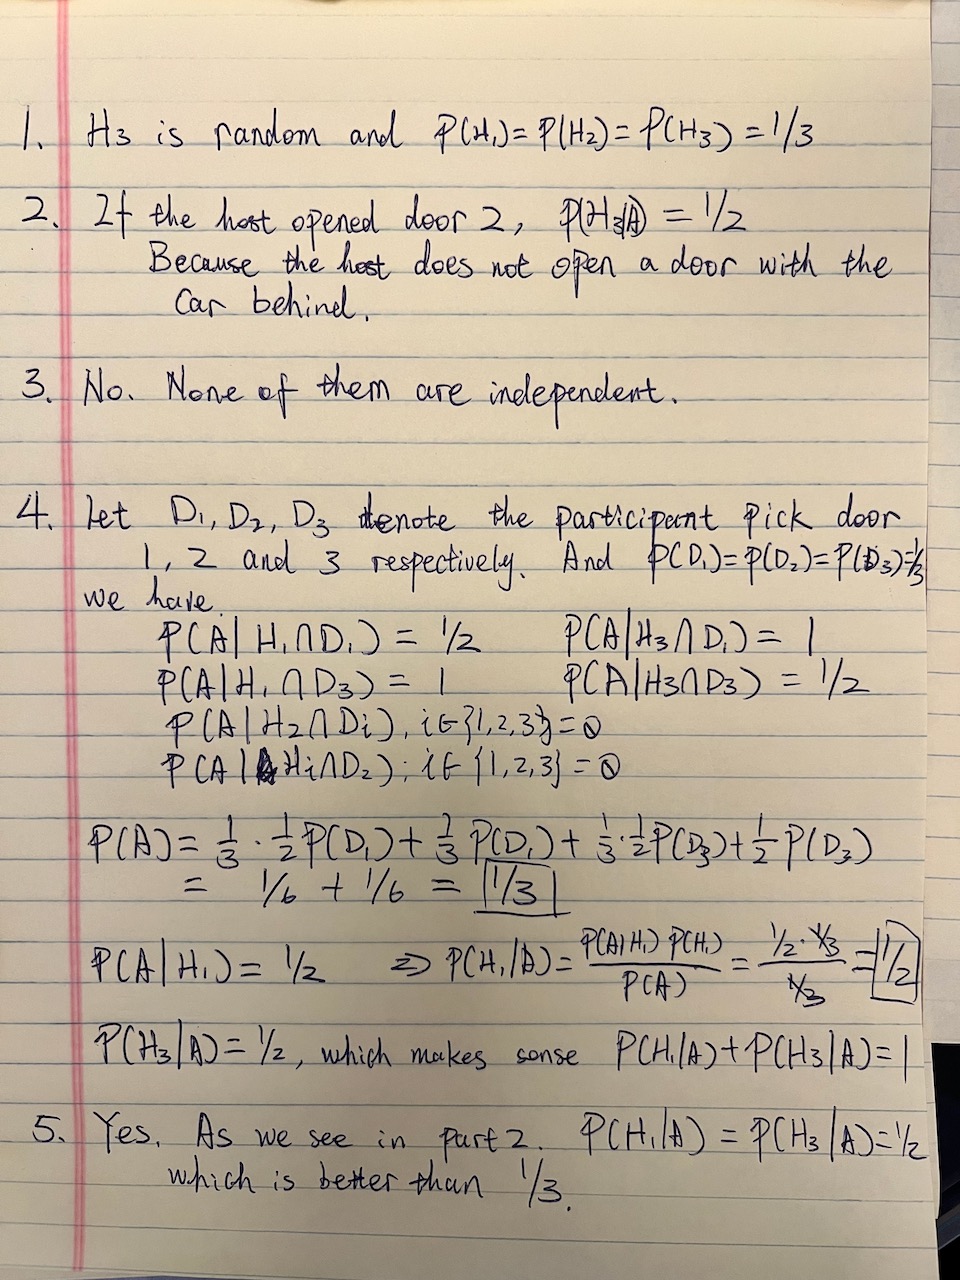 1. H₃ is random and P(H₁)= P(H₂)= P(H₃) = 1/3
2. If the host opened door 2, P(H₃|A) = 1/2
Because the host does not open a door with the
Car behind.
3. No. None of them are independent.
4. Let D₁, D₂, D₃ denote the participant pick door
1, 2 and 3 respectively. And P(D₁)=P(D₂)=P(D₃)=1/3
we have.
P(A| H₁∩D₁) = 1/2 P(A|H₃∩D₁) = 1
P(A|H₁∩D₃) = 1 P(A|H₃∩D₃) = 1/2
P(A|H₂∩Di), i∈{1,2,3}=0
P(A|Hi∩D₂); i∈{1,2,3}=0
P(A)= 1/3 · 1/2 P(D₁) + 1/3 P(D₁) + 1/3 · 1/2 P(D₃) + 1/2 P(D₃)
= 1/6 + 1/6 = 1/3
P(A|H₁) = 1/2 ⇒ P(H₁|A) = P(A|H₁) P(H₁) / P(A) = 1/2 · 1/3 / 1/3 = 1/2
P(H₃|A) = 1/2, which makes sense P(H₁|A)+P(H₃|A)=1
5. Yes. As we see in part 2. P(H₁|A) = P(H₃|A)=1/2
which is better than 1/3.